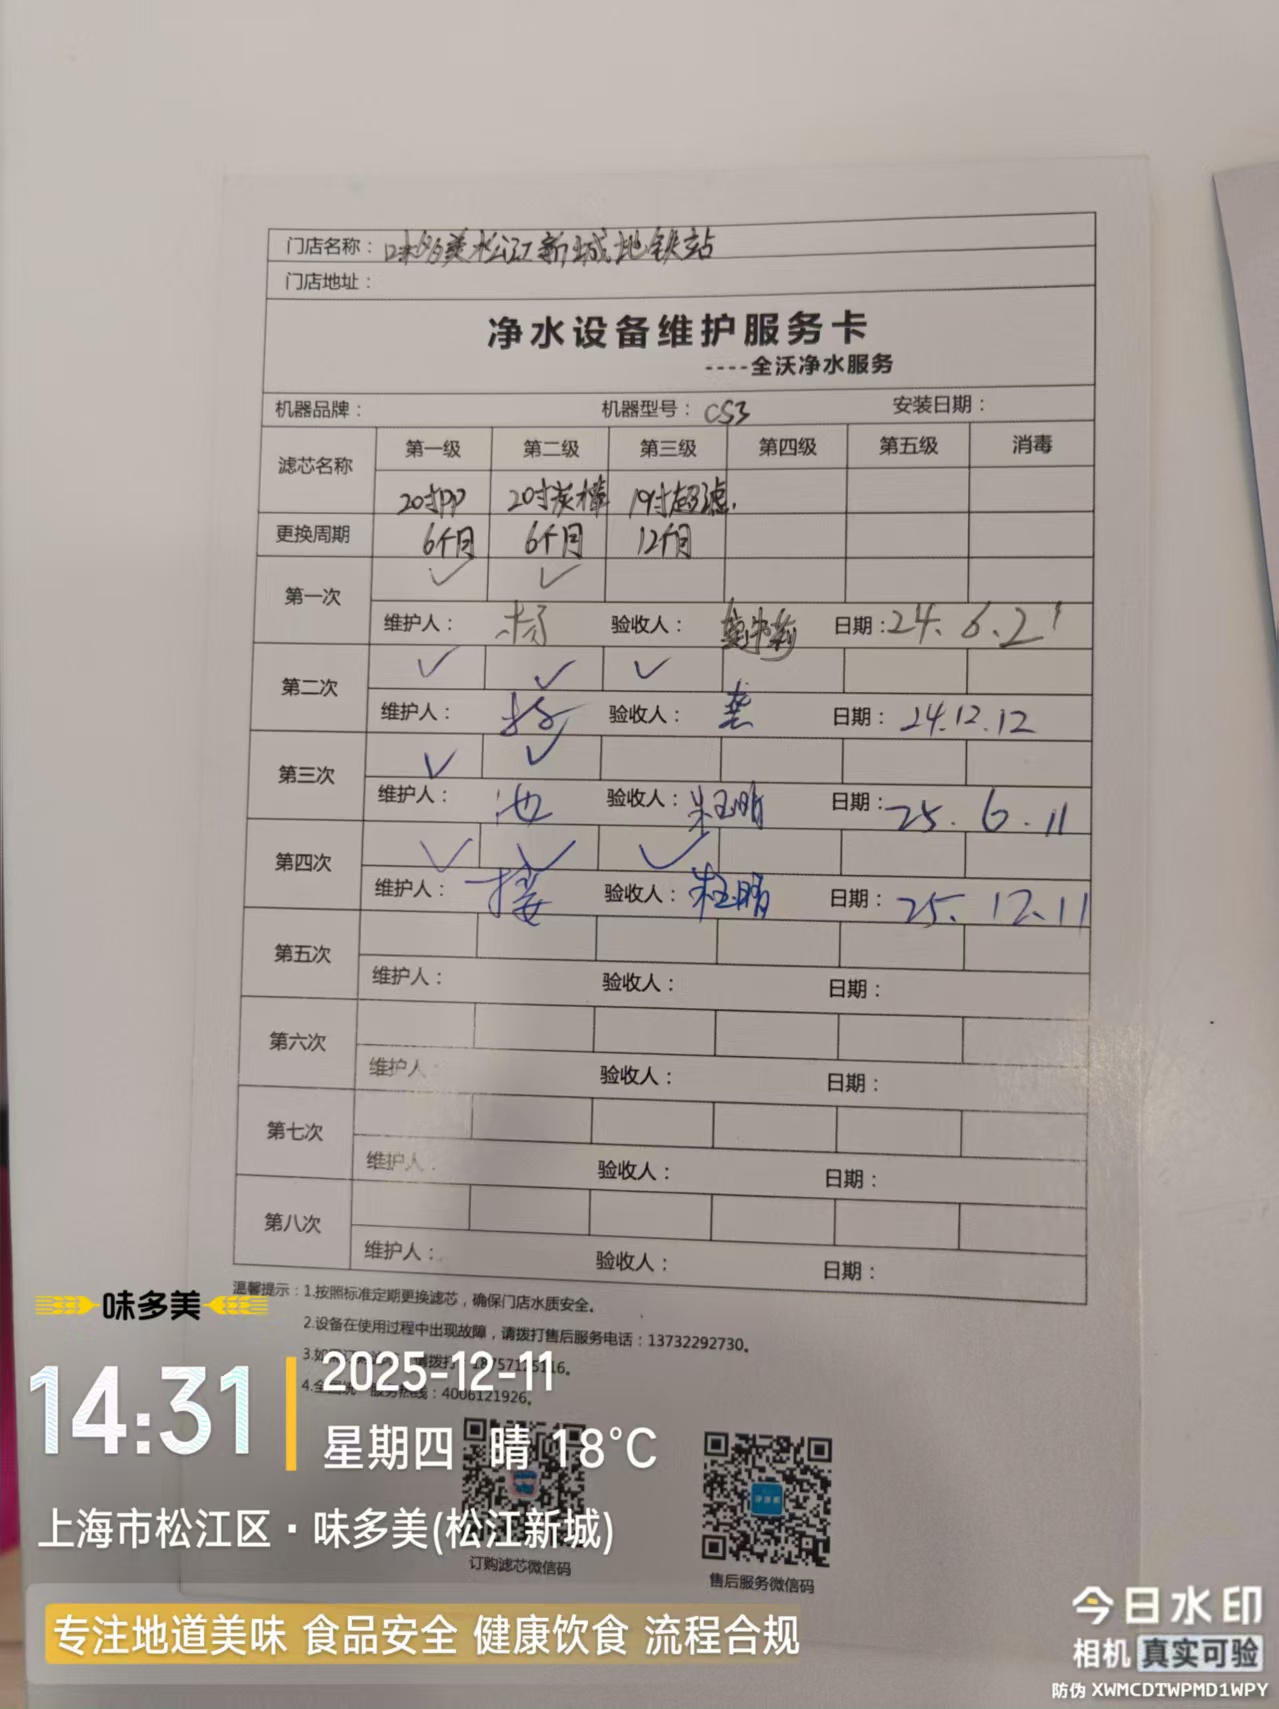 门店名称：味多美松江新城地铁站
门店地址：
净水设备维护服务卡
----全沃净水服务
机器品牌： 机器型号：CS3 安装日期：
滤芯名称 第一级 第二级 第三级 第四级 第五级 消毒
20寸PP 20寸炭棒 19寸超滤.
更换周期 6个月 6个月 12个月
第一次 ✓ ✓
维护人：杨 验收人： 日期：24.6.21
第二次 ✓ ✓ ✓
维护人： 验收人：龚 日期：24.12.12
第三次 ✓ ✓
维护人：池 验收人：朱玉明 日期：25.6.11
第四次 ✓ ✓ ✓
维护人：接 验收人：朱玉明 日期：25.12.11
第五次
维护人： 验收人： 日期：
第六次
维护人： 验收人： 日期：
第七次
维护人： 验收人： 日期：
第八次
维护人： 验收人： 日期：
温馨提示：1.按照标准定期更换滤芯，确保门店水质安全。
2.设备在使用过程中出现故障，请拨打售后服务电话：13732292730。
3.如 请拨打
4.全国统一服务热线：4006121926。
订购滤芯微信码
售后服务微信码
味多美
14:31
2025-12-11
星期四 晴 18°C
上海市松江区·味多美(松江新城)
专注地道美味 食品安全 健康饮食 流程合规
今日水印
相机 真实可验
防伪 XWMCDTWPMD1WPY